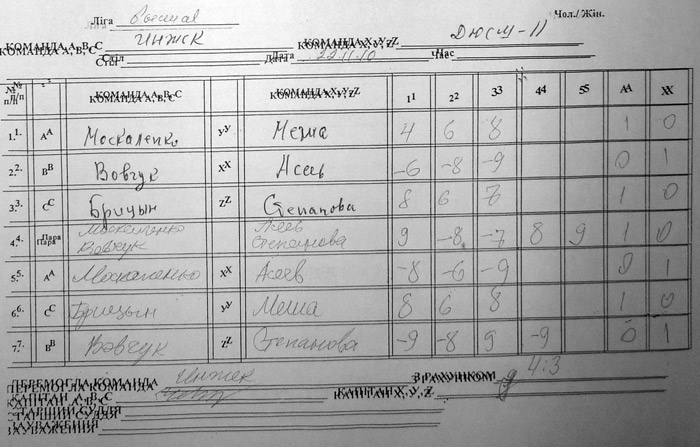 Ліга Вища Чол./ Жін.
КОМАНДА А, В, С ИНЖЕК КОМАНДА X, Y, Z ДЮСМ-11
Стіл Дата 22.11.10 Час
№ п/п КОМАНДА А, В, С КОМАНДА X, Y, Z 1 2 3 4 5 А X
1. А Москаленко У Меша 4 6 8 1 0
2. В Вовчук X Асеев -6 -8 -9 0 1
3. С Брицын Z Степанова 8 6 7 1 0
4. Пара Москаленко Вовчук Асеев Степанова 9 -8 -7 8 9 1 0
5. А Москаленко X Асеев -8 -6 -9 0 1
6. С Брицын У Меша 8 6 8 1 0
7. В Вовчук Z Степанова -9 -8 9 -9 0 1
ПЕРЕМОГЛА КОМАНДА Инжек З РАХУНКОМ 4:3
КАПІТАН А, В, С КАПІТАН X, Y, Z
СТАРШИЙ СУДДЯ
ЗАУВАЖЕННЯ